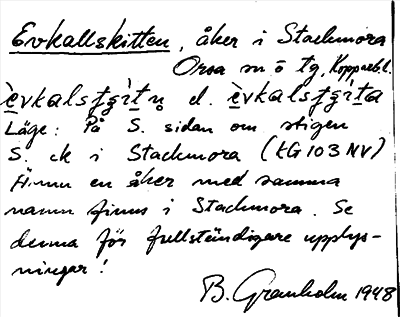 Evkallskitten, åker i Stackmora
Orsa sn o tg, Kopparb. l.
èvkalsʃgìtn̥ d. èvkalsʃgìta
Läge: På S. sidan om stigen
S. ck i Stackmora (kG 103 NV)
Ännu en åker med samma
namn finns i Stackmora. Se
denna för fullständigare upplys-
ningar!
B. Granholm 1948